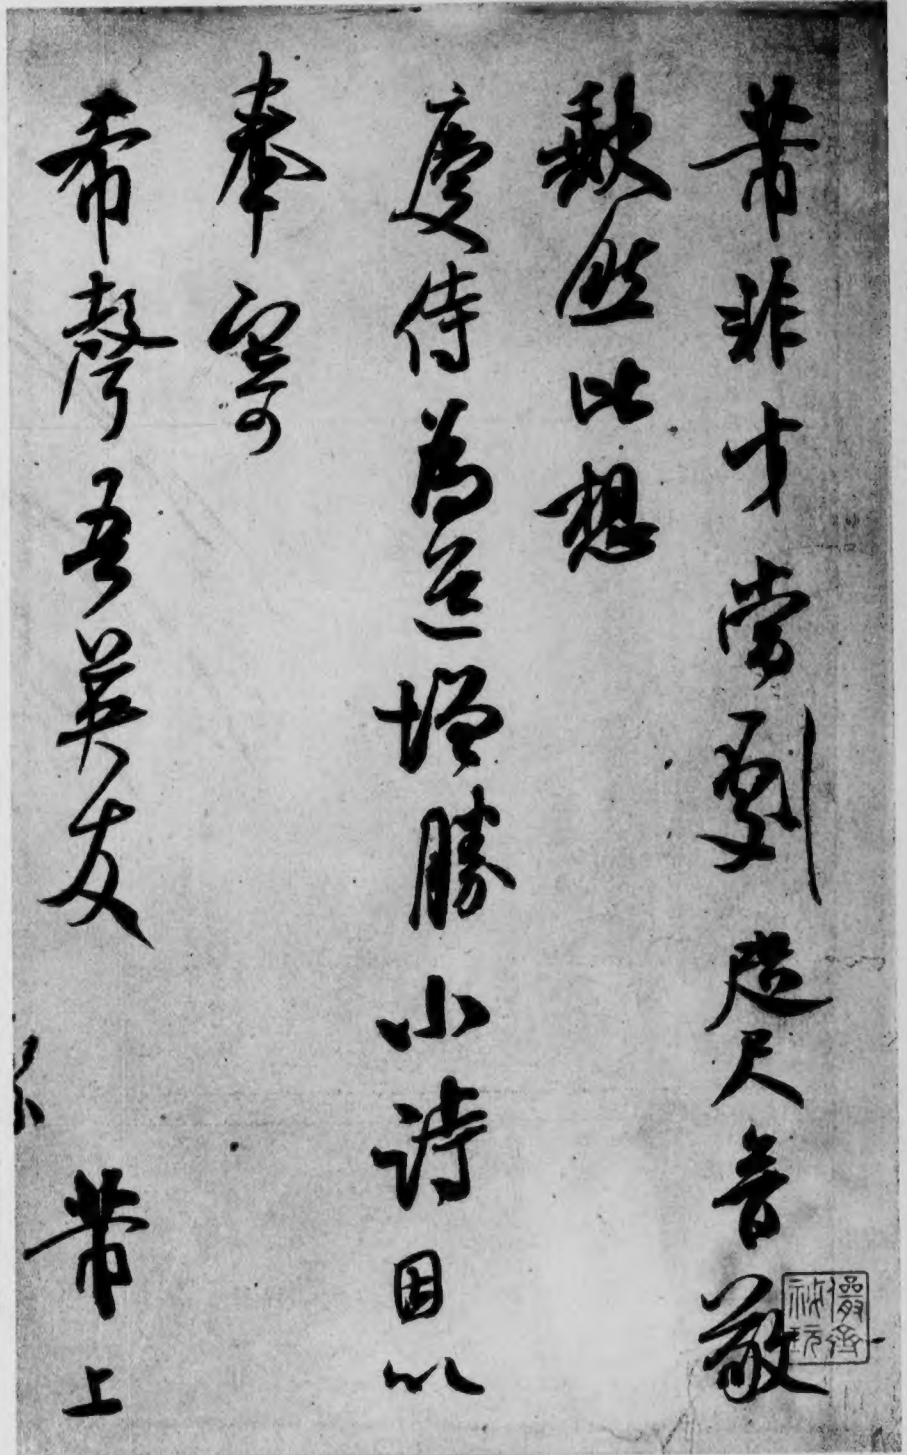 芾非才當劇咫尺音敬
缺然比想
慶侍為道增勝小詩因以
奉寄
希聲吾英友 芾上
儼齋
祕玩